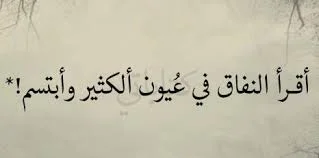 أقرأ النفاق في عُيون ألكثير وأبتسم!*